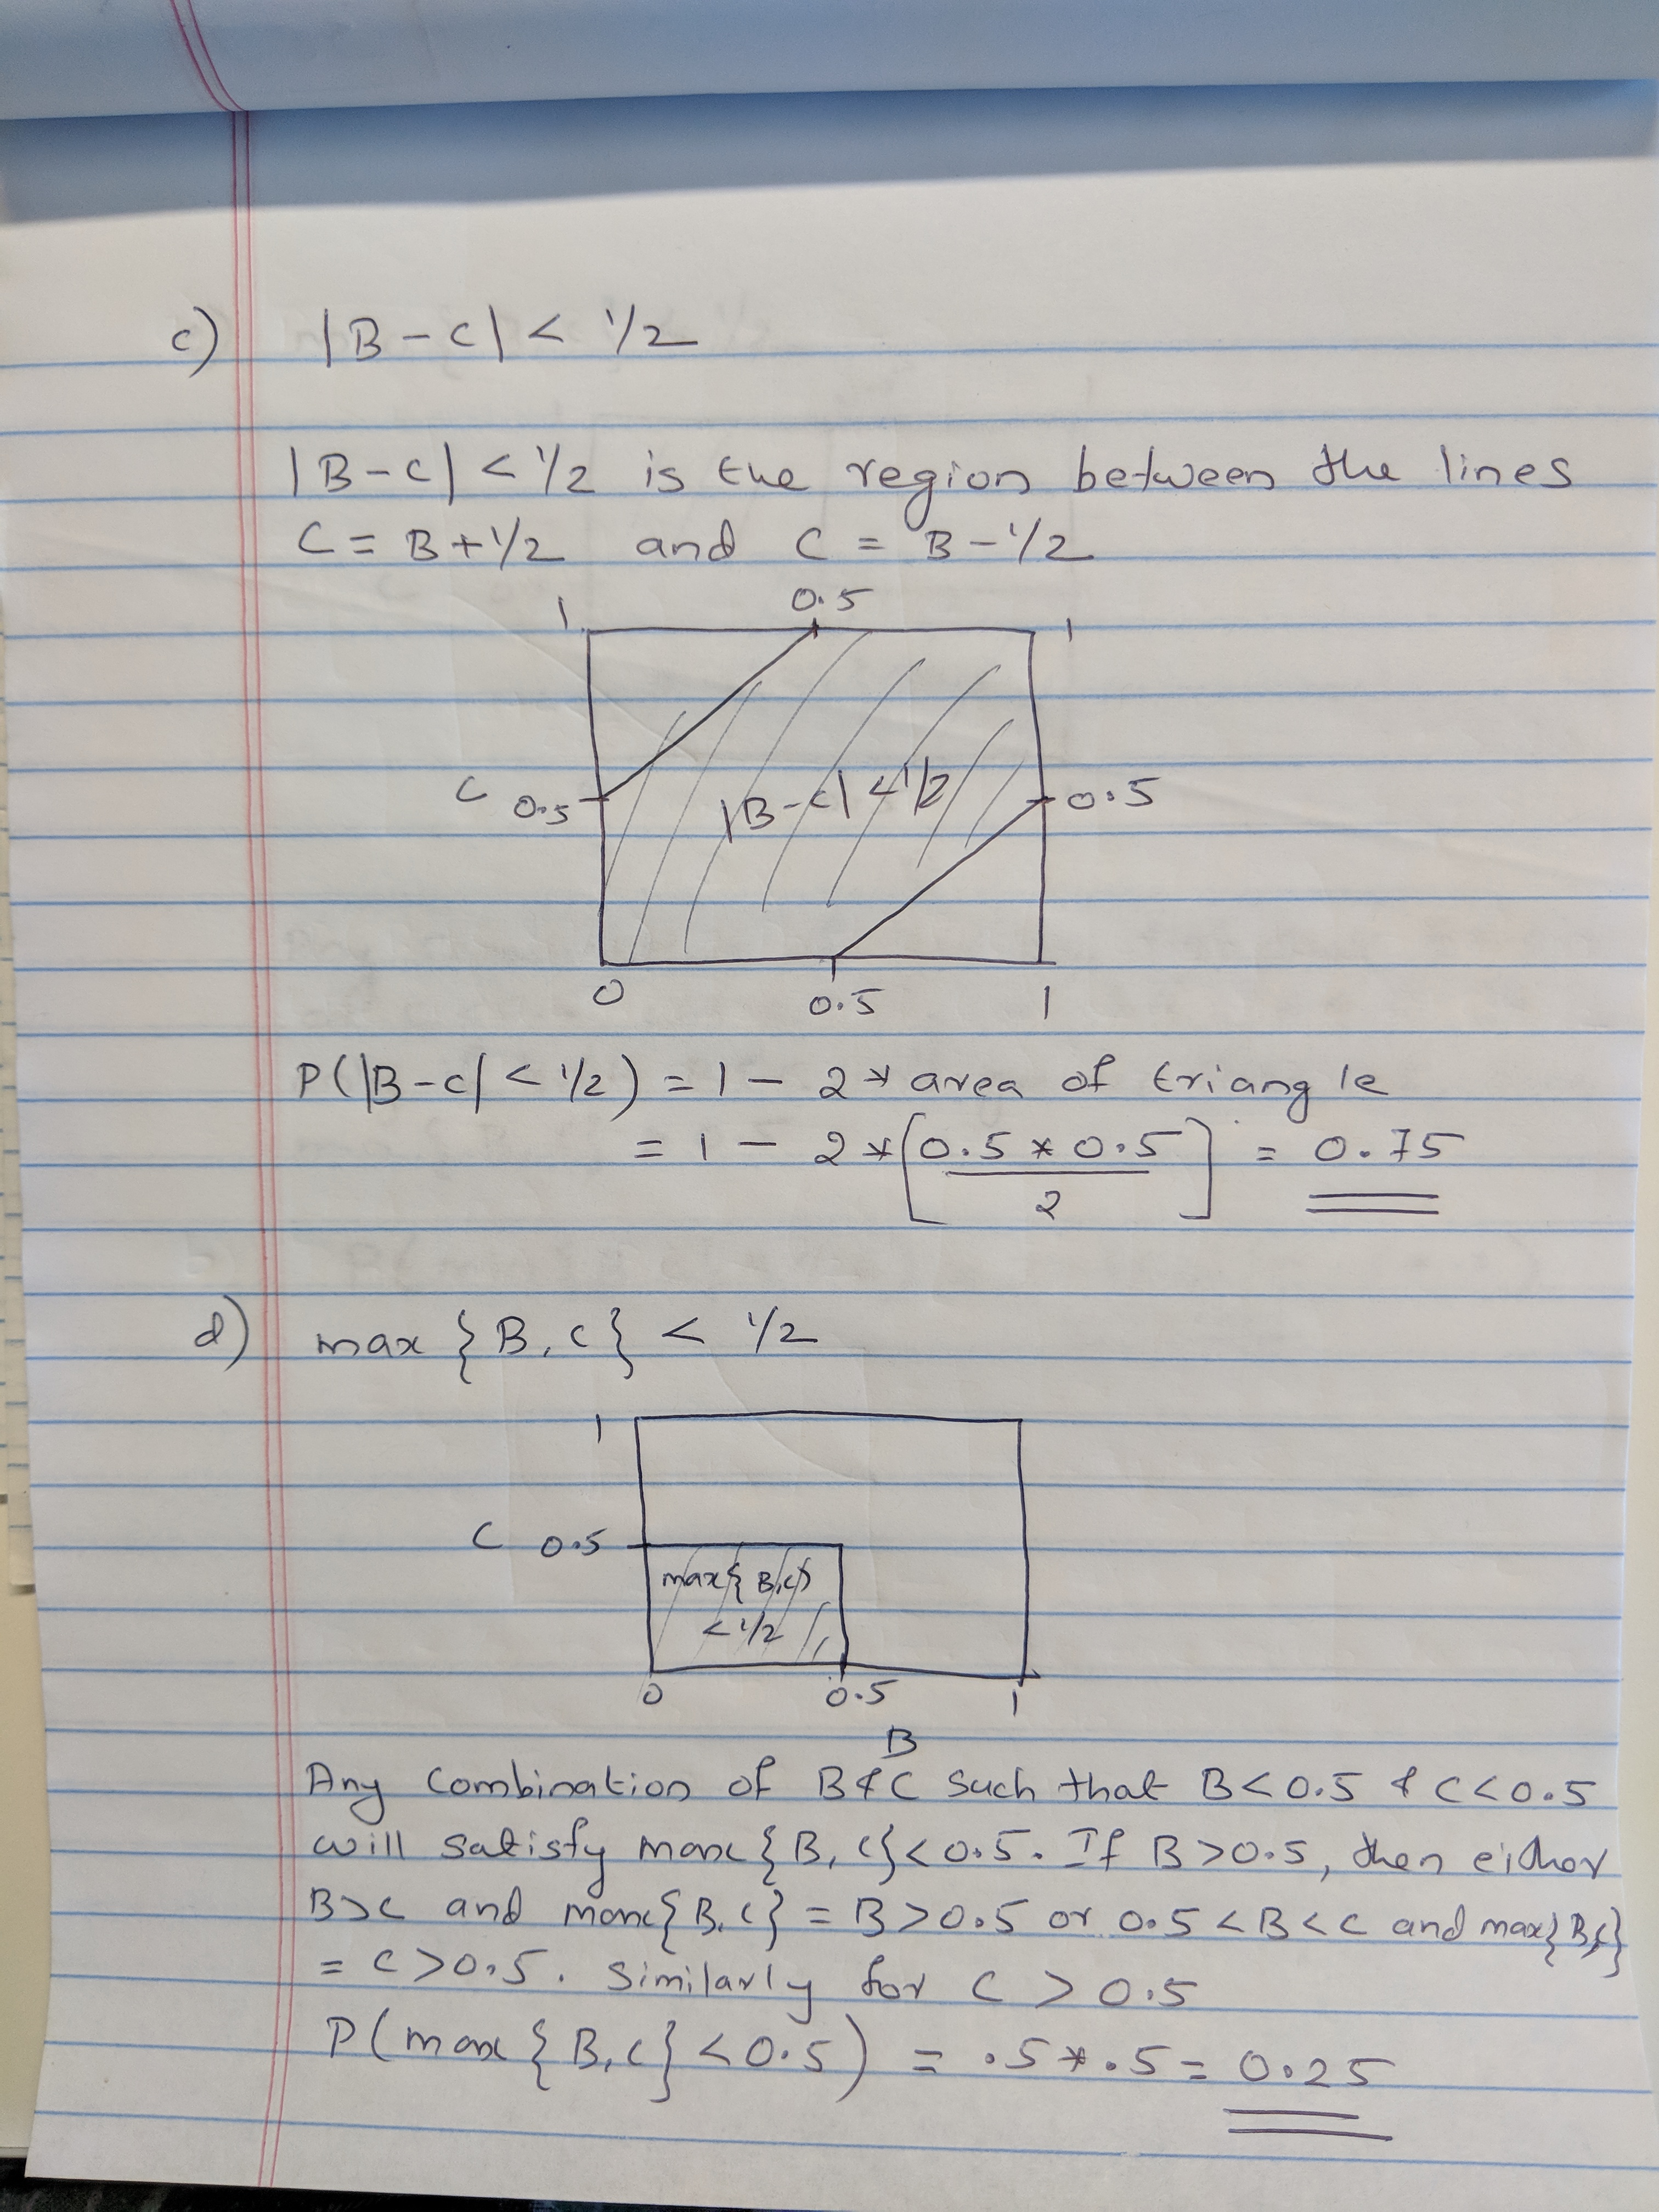 c) |B-C| < 1/2
|B-C| < 1/2 is the region between the lines
C = B+1/2 and C = B-1/2
0.5
1 1
|B-C| < 1/2
C 0.5 0.5
0 0.5 1
P(|B-C| < 1/2) = 1 - 2 * area of triangle
= 1 - 2 * [0.5 * 0.5 / 2] = 0.75
d) max {B, C} < 1/2
1
C 0.5
max{B,C}
< 1/2
0 0.5 1
B
Any combination of B & C such that B < 0.5 & C < 0.5
will satisfy max {B, C} < 0.5. If B > 0.5, then either
B > C and max {B, C} = B > 0.5 or 0.5 < B < C and max{B,C}
= C > 0.5. Similarly for C > 0.5
P(max {B, C} < 0.5) = .5 * .5 = 0.25